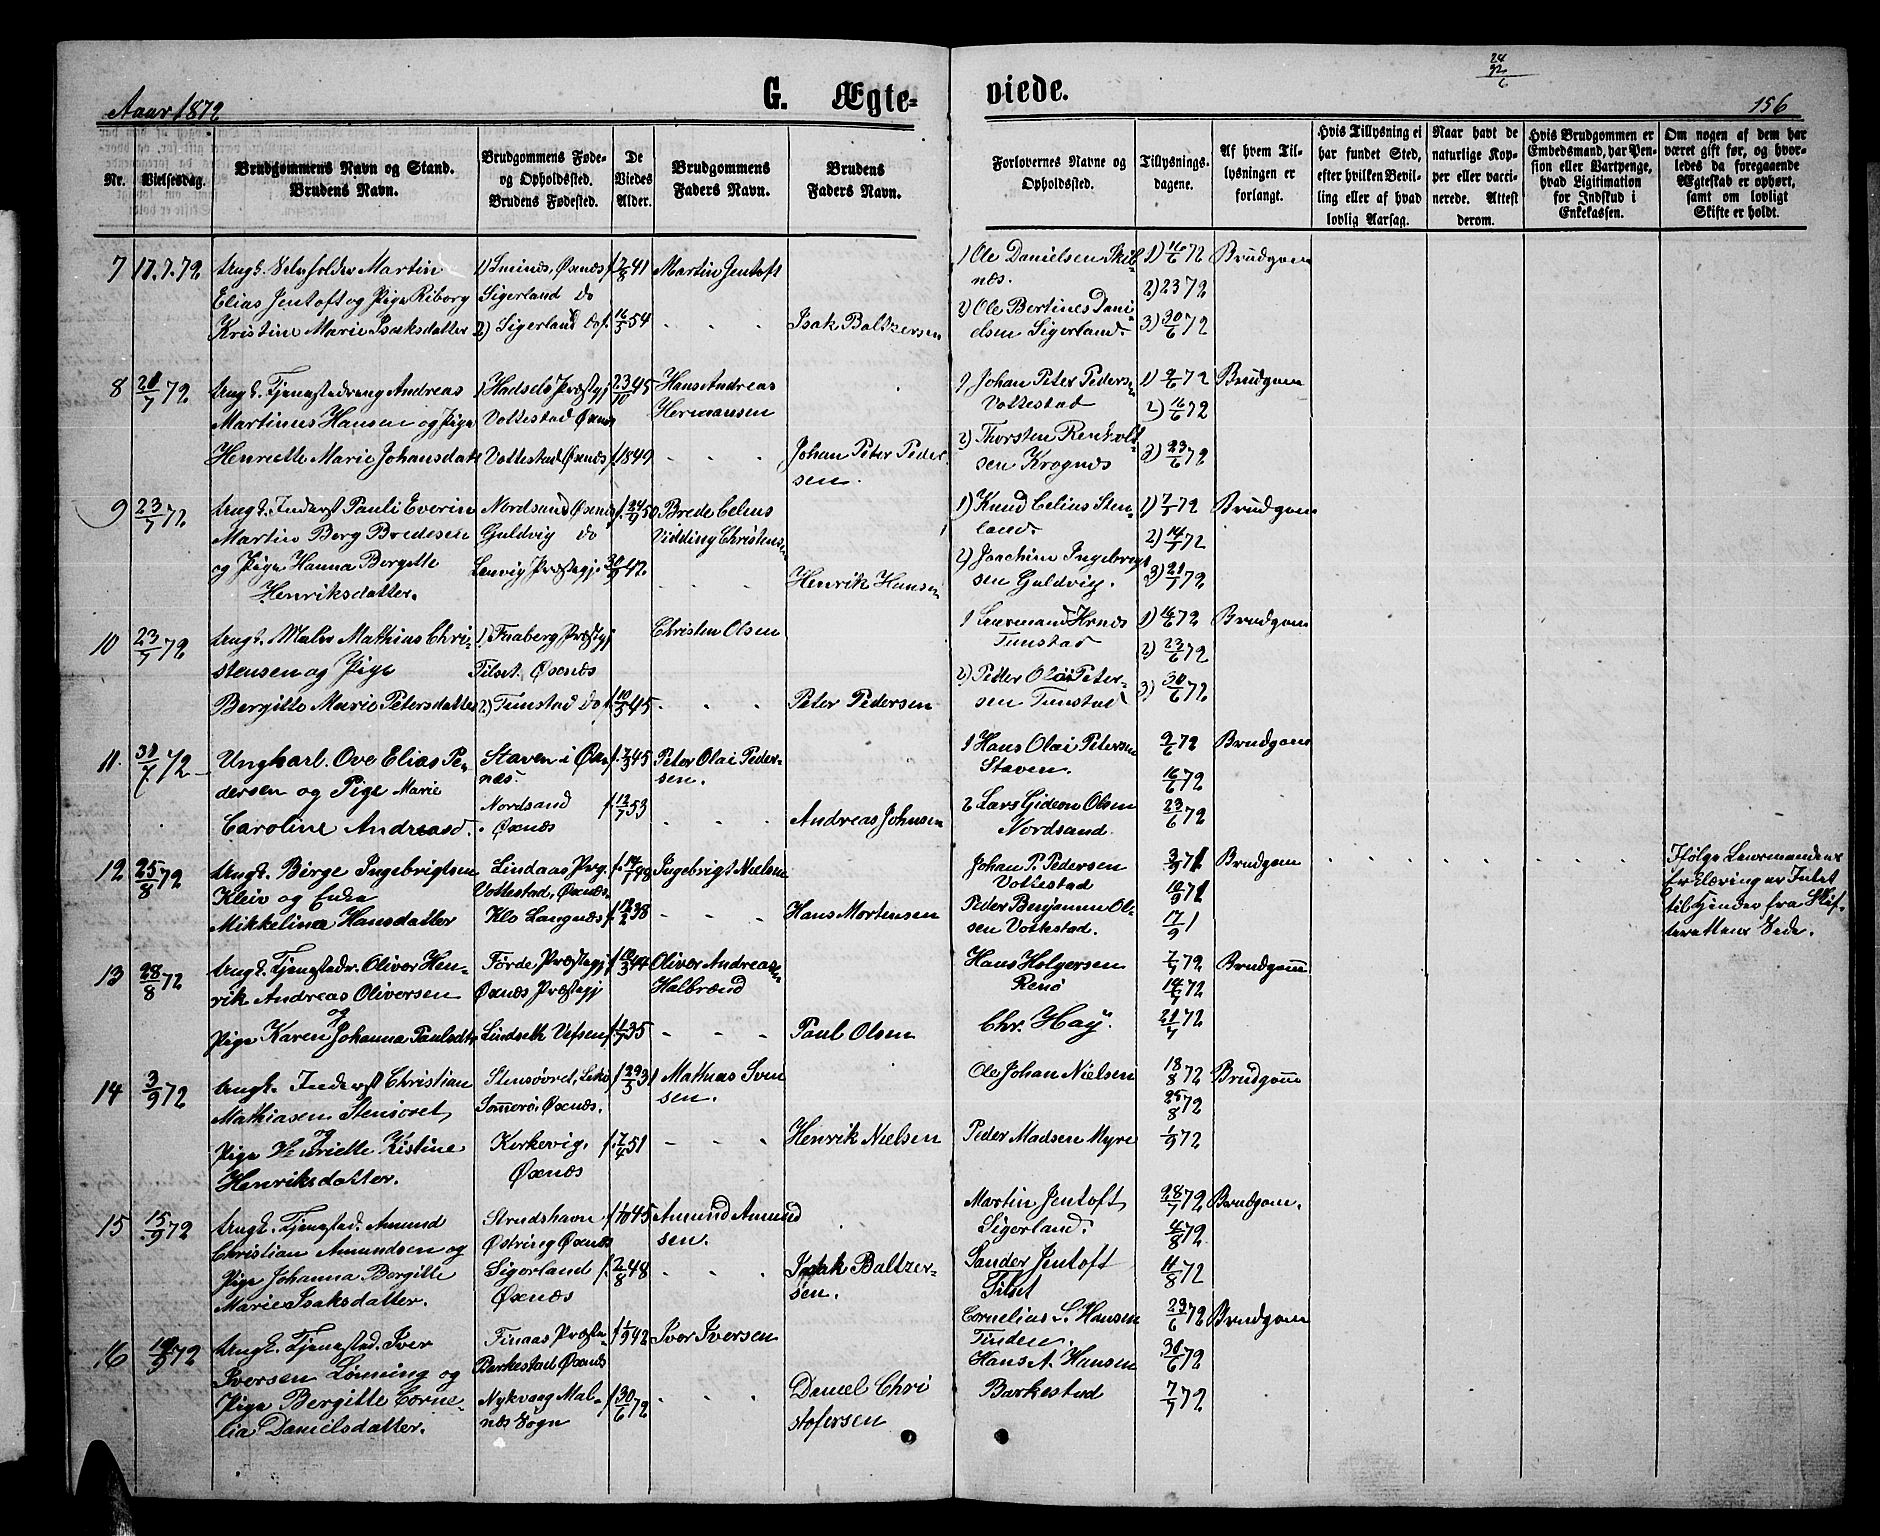 Aaar 1872
G. Ægte-
viede.
24
92
6
156
Nr.
Vielsesdag.
Brudgommens Navn og Stand.
Brudens Navn.
Brudgommens Føde-
og Opholdssted.
Brudens Fødested.
De
Viedes
Alder.
Brudgommens
Faders Navn.
Brudens
Faders Navn.
Forlovernes Navne og
Opholdssted.
Tillysnings-
dagene.
Af hvem Til-
lysningen er
forlangt.
Hvis Tillysning ei
har fundet Sted,
efter hvilken Bevil-
ling eller af hvad
lovlig Aarsag.
Naar havt de
naturlige Kop-
per eller vacci-
nerede. Attest
derom.
Hvis Brudgommen er
Embedsmand, har Pen-
sion eller Vartpenge,
hvad Ligitimation
for Indskud i
Enkekassen.
Om nogen af dem har
været gift før, og hvor-
ledes da foregaaende
Ægteskab er ophørt,
samt om lovligt
Skifte er holdt.
7 17.7.72
Ungk. Selvfolder Martin
Elias Jentoft og Pige Riborg
Kristine Marie Isaksdatter
1) Sminæs, Øxnæs
Sigerland do
2) Sigerland do
f. 2/8 41
f. 16/3 54
Martin Jentoft
Isak Baltzersen
1) Ole Danielsen Skib-
næs.
2) Ole Bertines Dani-
elsen Sigerland.
1) 16/6 72
2) 23 72
3) 30/6 72
Brudgom
8 21/7 72
Ungk. Tjenestedreng Andreas
Martinus Hansen og Pige
Henriette Marie Johansdatt
1) Hadsels Præstgj
Vottestad Øxnæs
Vottestad Øxnæs
23/10 45
f. 1849
Hans Andreas
Hermansen
Johan Peter Peder
sen.
1) Johan Peter Peders
Vottestad
2) Thorsten Renholdt
sen Krognæs
1) 9/6 72
2) 16/6 72
3) 23/6 72
Brudgom
9 23/7 72
Ungk. Inderst Pauli Everin
Martin Berg Bredesen
og Pige Hanna Bergitte
Henriksdatter.
Nordsand Øxnæs
Guldvig do
Lenvig Præstegj.
f. 24/9 50
30/9 42
Brede Celius
Vidding Christensen
Henrik Hansen
1) Knud Celius Sten-
land.
2) Joachim Ingebrigt
sen Guldvig.
1) 7/7 72
2) 14/7 72
3) 21/7 72
Brudgom
10 23/7 72
Ungk. Maler Mathias Chri-
stensen og Pige
Bergitte Marie Petersdatter
1) Faaberg Præstgj
Tilset, Øxnæs
2) Tunstad do
f. 10/3 45
Christen Olsen
Peter Pedersen
1 Lensmand Hrnæs
Tunstad
2) Peder Olai Peter-
sen Tunstad
1) 16/6 72
2) 23/6 72
3) 30/6 72
Brudgom
11. 31/7 72
Ungkarl. Ove Elias Pe-
dersen og Pige Marie
Caroline Andreasd.
Staven i Øx-
næs.
Nordsand
Øxnæs
f. 7/3 45
f. 12/7 53
Peter Olai Peder-
sen.
Andreas Johnsen
1 Hans Olai Petersen
Staven.
2 Lars Gideon Olsen
Nordsand.
9/6 72
16/6 72
23/6 72
Brudgom
12 25/8 72
Ungk. Birge Ingebrigtsen
Kleiv og Enke
Mikkelina Hansdatter
Lindaas Prg.
Vottestad, Øxnæs
Klo Langnæs
f. 14/7 98
f. 12/2 38
Ingebrigt Nielsen
Hans Mortensen
Johan P. Pedersen
Vottestad
Peder Benjamin Ol-
sen Vottestad.
3/9 71
10/9 71
17/9 1
Brudgom
Ifølge Lensmandens
Erklæring er Intet
til Hinder fra Skif-
terettens Side.
13 28/8 72
Ungk. Tjenestedr. Oliver Hen-
rik Andreas Oliversen
og
Pige Karen Johanna Paulsdt
Førde Præstegj
Øxnæs Præstegj
Lindseth Vefsen
f. 12/3 44
f. 1/7 35
Oliver Andreassen
Halbrænd
Paul Olsen
Hans Holgersen
Renø
Chr. Høy.
7/7 72
14/7 72
21/7 72
Brudgom
14 3/9 72
Ungk. Inderst Christian
Mathiasen Stensøret
og
Pige Henriette Kistine
Henriksdatter.
Sommerø, Øxnæs.
Kirkevig,
Øxnæs
f. 29/5 31
f. 7/4 51
Mathias Sven
sen.
Henrik Nielsen
Ole Johan Nielsen
Peder Madsen Myre
18/8 72
25/8 72
1/9 72
Brudgom
15 15/9 72
Ungk. Tjenested. Amund
Christian Amundsen og
Pige Johanna Bergitte
Marie Isaksdatter.
Strudshavn
Østving Øxnæs
Sigerland
Øxnæs
f. 1/10 45
f. 2/8 48
Amund Amund
sen.
Isak Baltzer-
sen.
Martin Jentoft
Sigerland.
Sander Jentoft
Tilset
28/7 72
4/8 72
11/8 72
Brudgom.
16 19/9 72
Ungk. Tjenested. Iver
Iversen Lønning og
Pige Bergitte Corne-
lia Danielsdatter.
Finaas Præste-
Barkestad Øxnæs
Nykvaag Mal-
næs Sogn
f. 1/9 42
f. 30/6 72
Ivor Iversen
Daniel Chri
stofersen
Cornelias S. Hansen
Tinden.
Hans A. Hansen
Barkestad
23/6 72
30/6 72
7/7 72
Brudgom